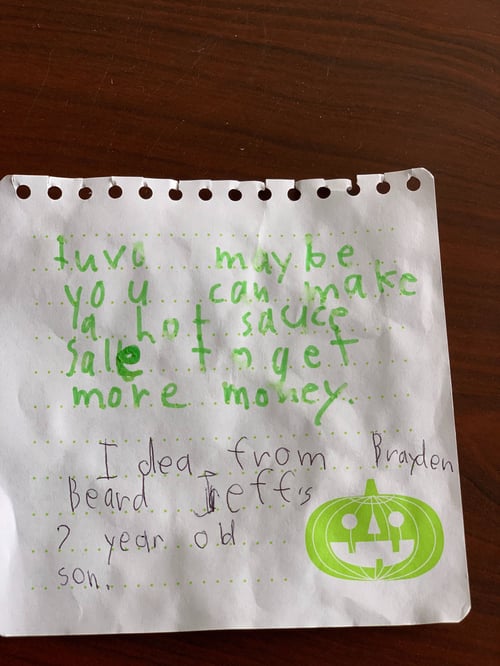 maybe
you can make
a hot sauce
Sale to get
more money.
I dea from Brayden
Beard Jeff's
7 year old
son.